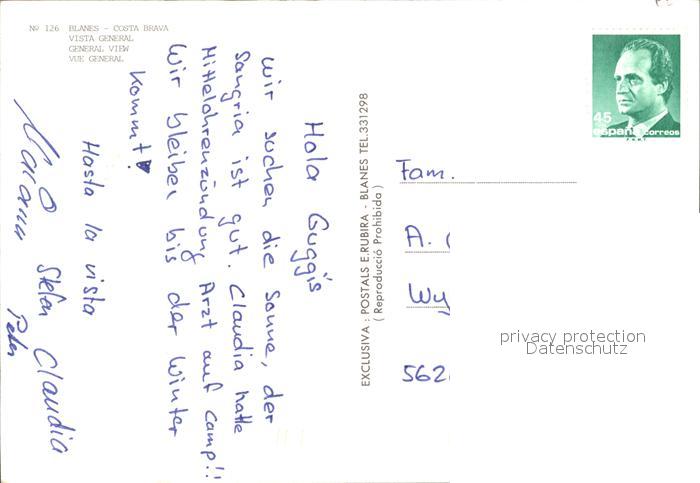 Nº 126 BLANES - COSTA BRAVA
VISTA GENERAL
GENERAL VIEW
VUE GENERAL
Hola Guggis
wir suchen die Sonne, der
Sangria ist gut. Claudia hatte
Mittelohrenzündung Arzt auf Camp!!
Wir bleiben bis der Winter
kommt!
Hasta la vista
Stefan Claudia
Peter
EXCLUSIVA: POSTALS E.RUBIRA - BLANES TEL.331298
( Reproducció Prohibida )
45
españa correos
Fam.
A.
Wy
562
privacy protection
Datenschutz